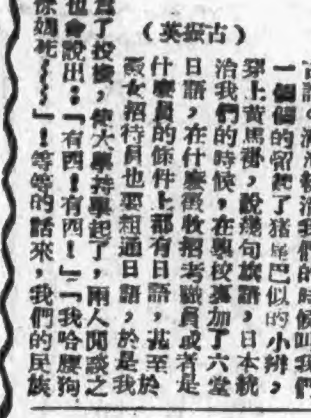 （古振英）
滿清統治我們的時候叫我們
一個個的留起了豬尾巴似的小辮，
穿上黃馬褂，說幾句旗語，日本統
治我們的時候，在學校裏加了六堂
日語，在什麼徵收招考職員或者是
什麼員的條件上都有日語，甚至於
女招待員也要粗通日語，於是我
為了投機，使大學起了，兩人閒談之
也會說出：「有四！有四！」「我哈腰狗
你媽死～～～」！等等的話來，我們的民族